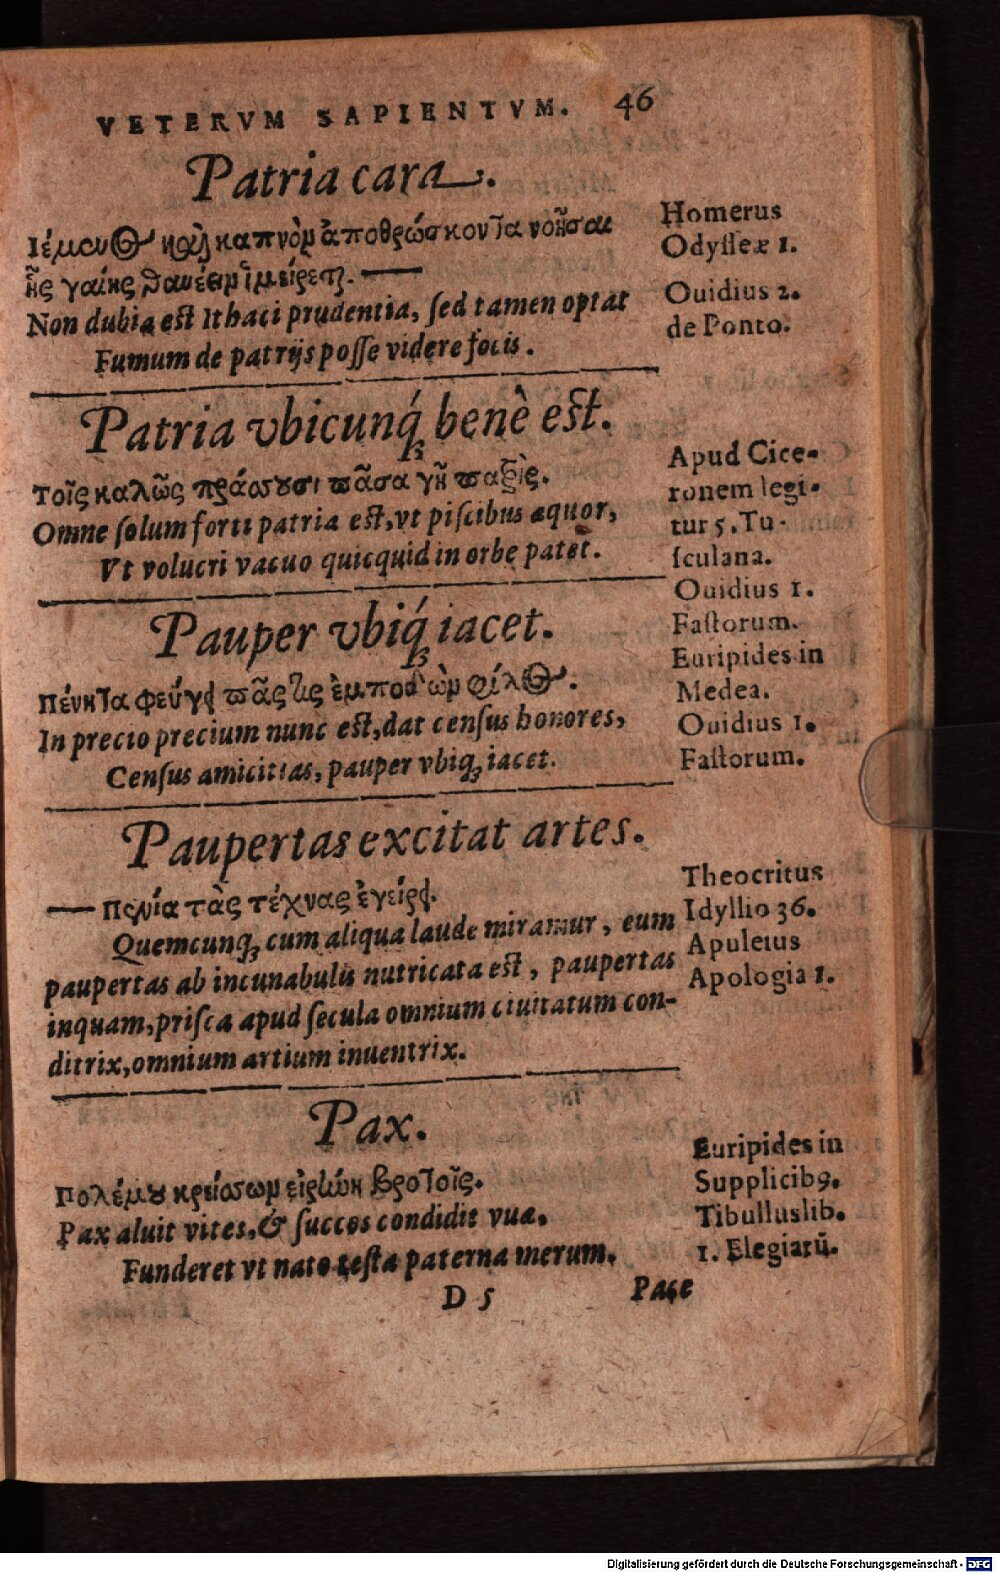 VETERVM SAPIENTVM. 46
Patria cara.
Ιέμενος καὶ καπνὸν ἀποθρώσκοντα νοῆσαι
ἧς γαίης θανέειν ἱμείρεται. —
Non dubia est Ithaci prudentia, sed tamen optat
Fumum de patrijs posse videre focis.
Homerus
Odysseæ 1.
Ouidius 2.
de Ponto.
Patria vbicunq́ꝫ benè est.
Τοῖς καλῶς πράσσουσι πᾶσα γῆ πατρίς.
Omne solum forti patria est, vt piscibus æquor,
Vt volucri vacuo quicquid in orbe patet.
Apud Cice-
ronem legi-
tur 5. Tu-
sculana.
Ouidius 1.
Fastorum.
Pauper vbiq́ꝫ iacet.
Πένητα φεύγει πᾶς τις ἐμποδὼν φίλος.
In precio precium nunc est, dat census honores,
Census amicitias, pauper vbiqꝫ iacet.
Euripides in
Medea.
Ouidius 1.
Fastorum.
Paupertas excitat artes.
— Πενία τὰς τέχνας ἐγείρει.
Quemcunqꝫ cum aliqua laude miramur, eum
paupertas ab incunabulis nutricata est, paupertas
inquam, prisca apud secula omnium ciuitatum con-
ditrix, omnium artium inuentrix.
Theocritus
Idyllio 36.
Apuleius
Apologia 1.
Pax.
Πολέμου κρείσσων εἰρήνη βροτοῖς.
Pax aluit vites, & succos condidit vuæ,
Funderet vt nato testa paterna merum.
Euripides in
Supplicibꝰ.
Tibullus lib.
1. Elegiarū.
D 5 Pace
Digitalisierung gefördert durch die Deutsche Forschungsgemeinschaft - DFG